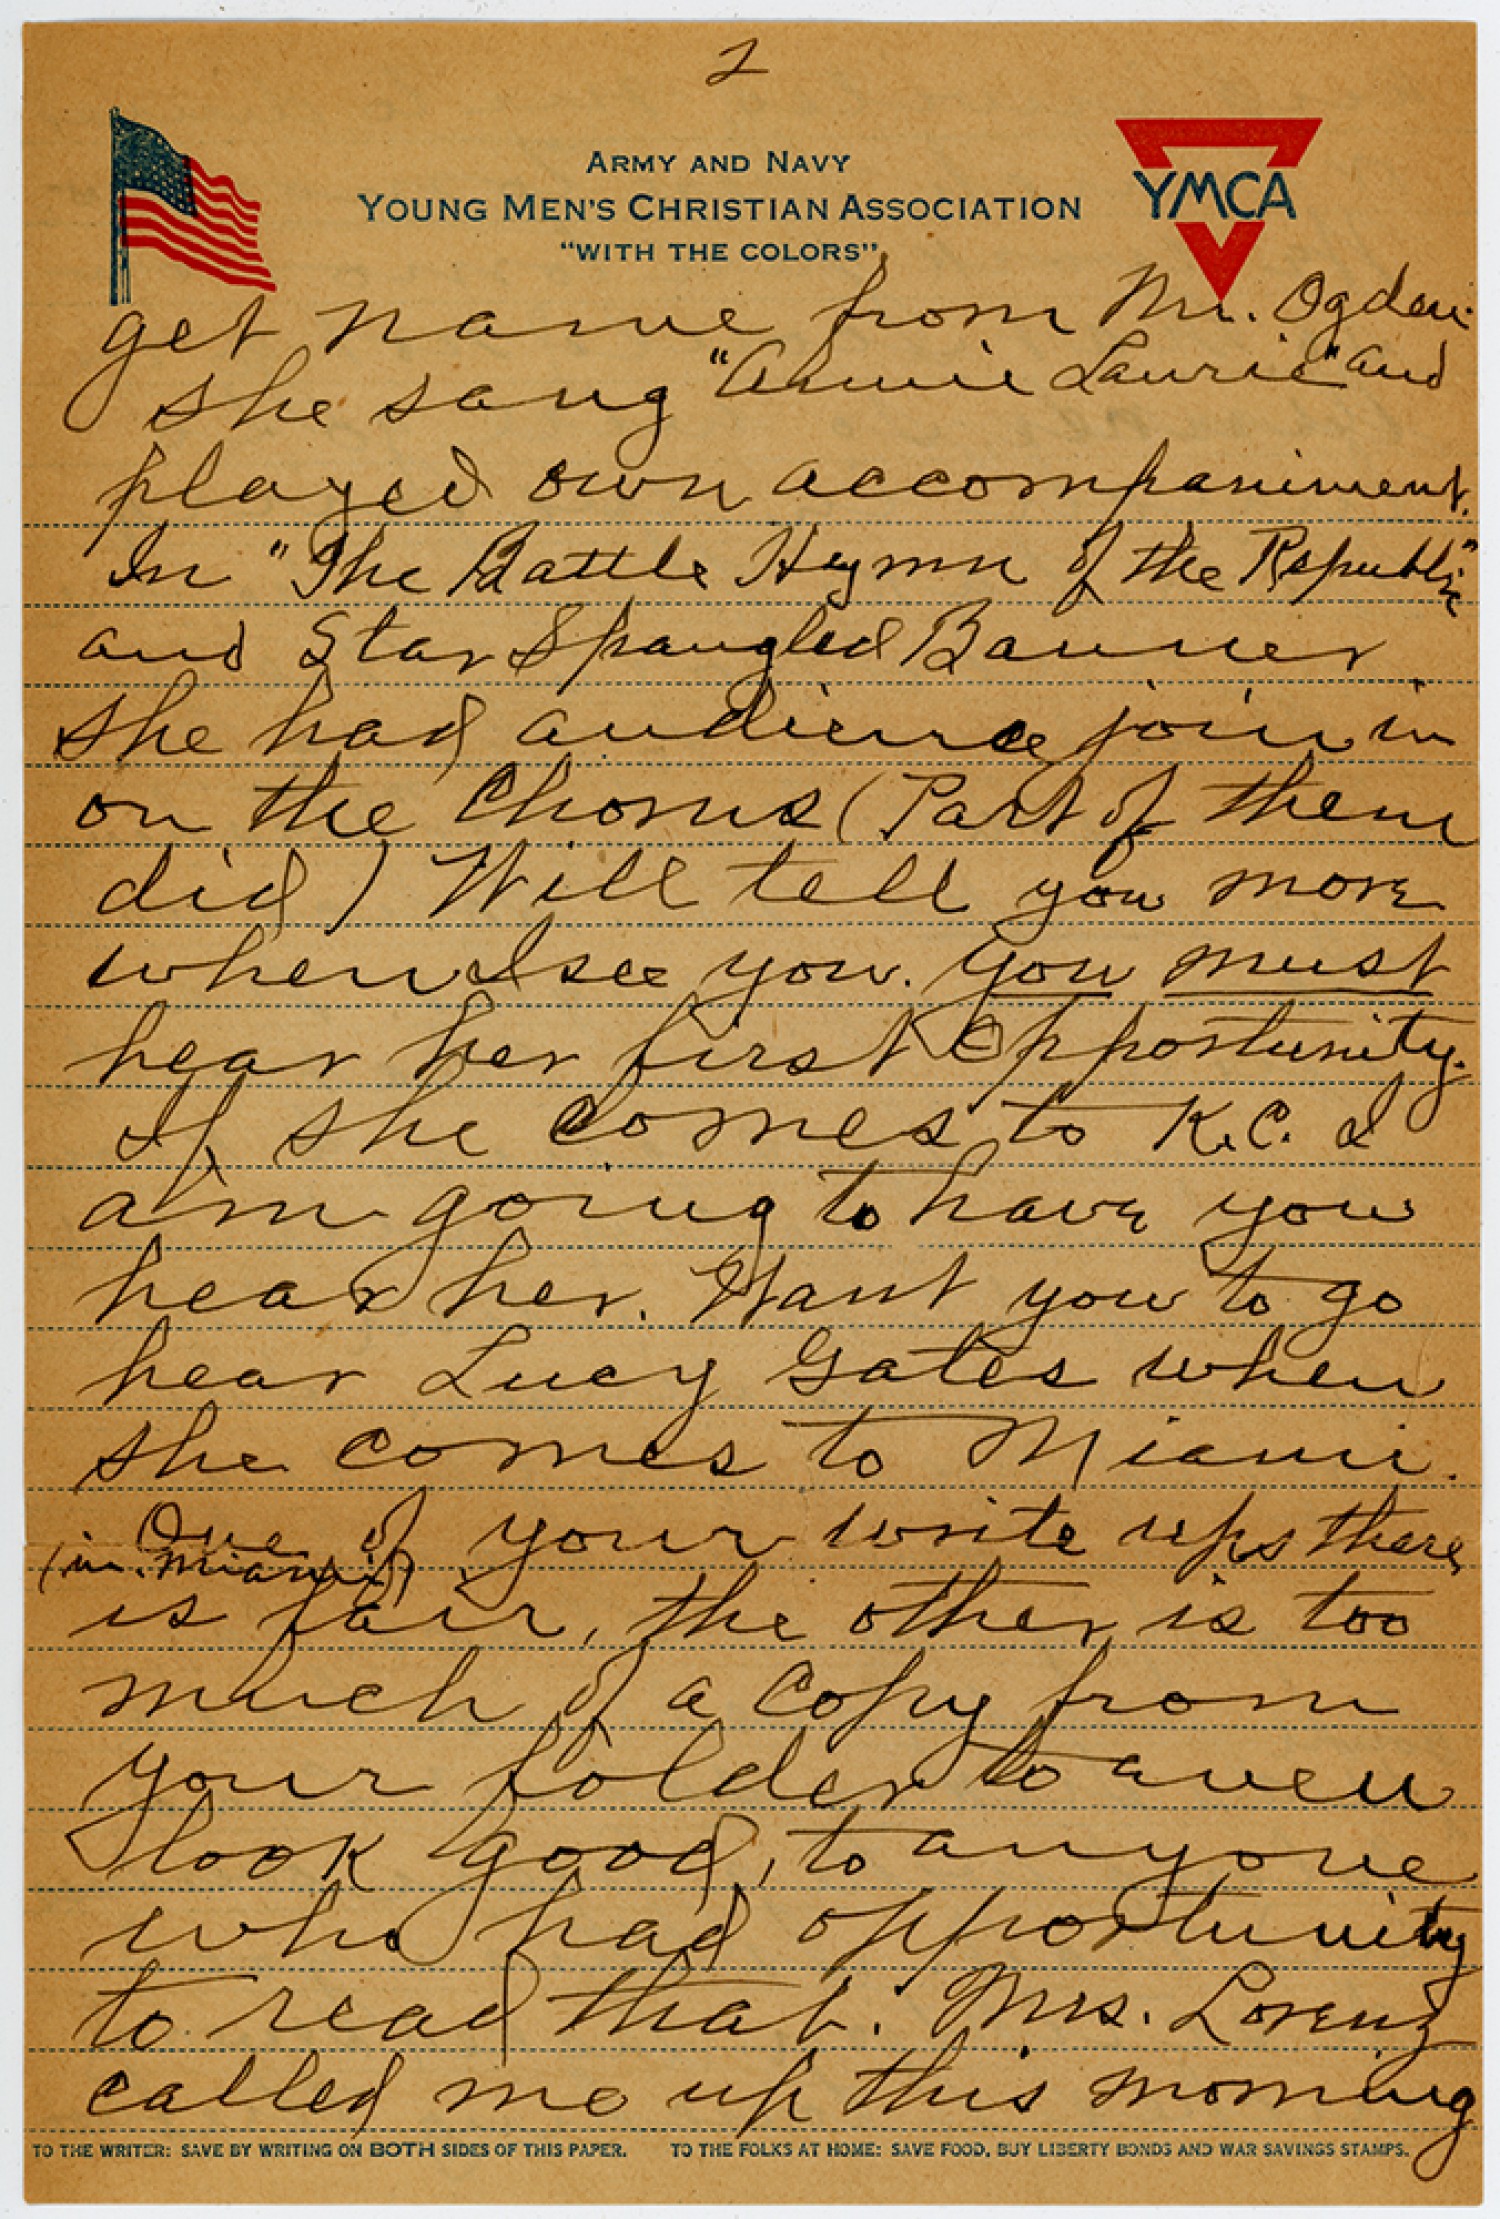 2
ARMY AND NAVY
YOUNG MEN'S CHRISTIAN ASSOCIATION
"WITH THE COLORS"
YMCA
get name from Mr. Ogden.
she sang "Annie Laurie" and
played own accompaniment.
In "The Battle Hymn of the Republic"
and Star Spangled Banner
she had audience join in
on the Chorus (Part of them
did) Will tell you more
when I see you. You must
hear her first opportunity.
If she comes to K.C. I
am going to have you
hear her. Want you to go
hear Lucy Gates when
she comes to Miami.
One of your write ups there
(in Miami)
is fair, the other is too
much of a copy from
your folder to even
look good, to anyone
who had opportunity
to read that. Mrs. Lorenz
called me up this morning
TO THE WRITER: SAVE BY WRITING ON BOTH SIDES OF THIS PAPER. TO THE FOLKS AT HOME: SAVE FOOD, BUY LIBERTY BONDS AND WAR SAVINGS STAMPS.